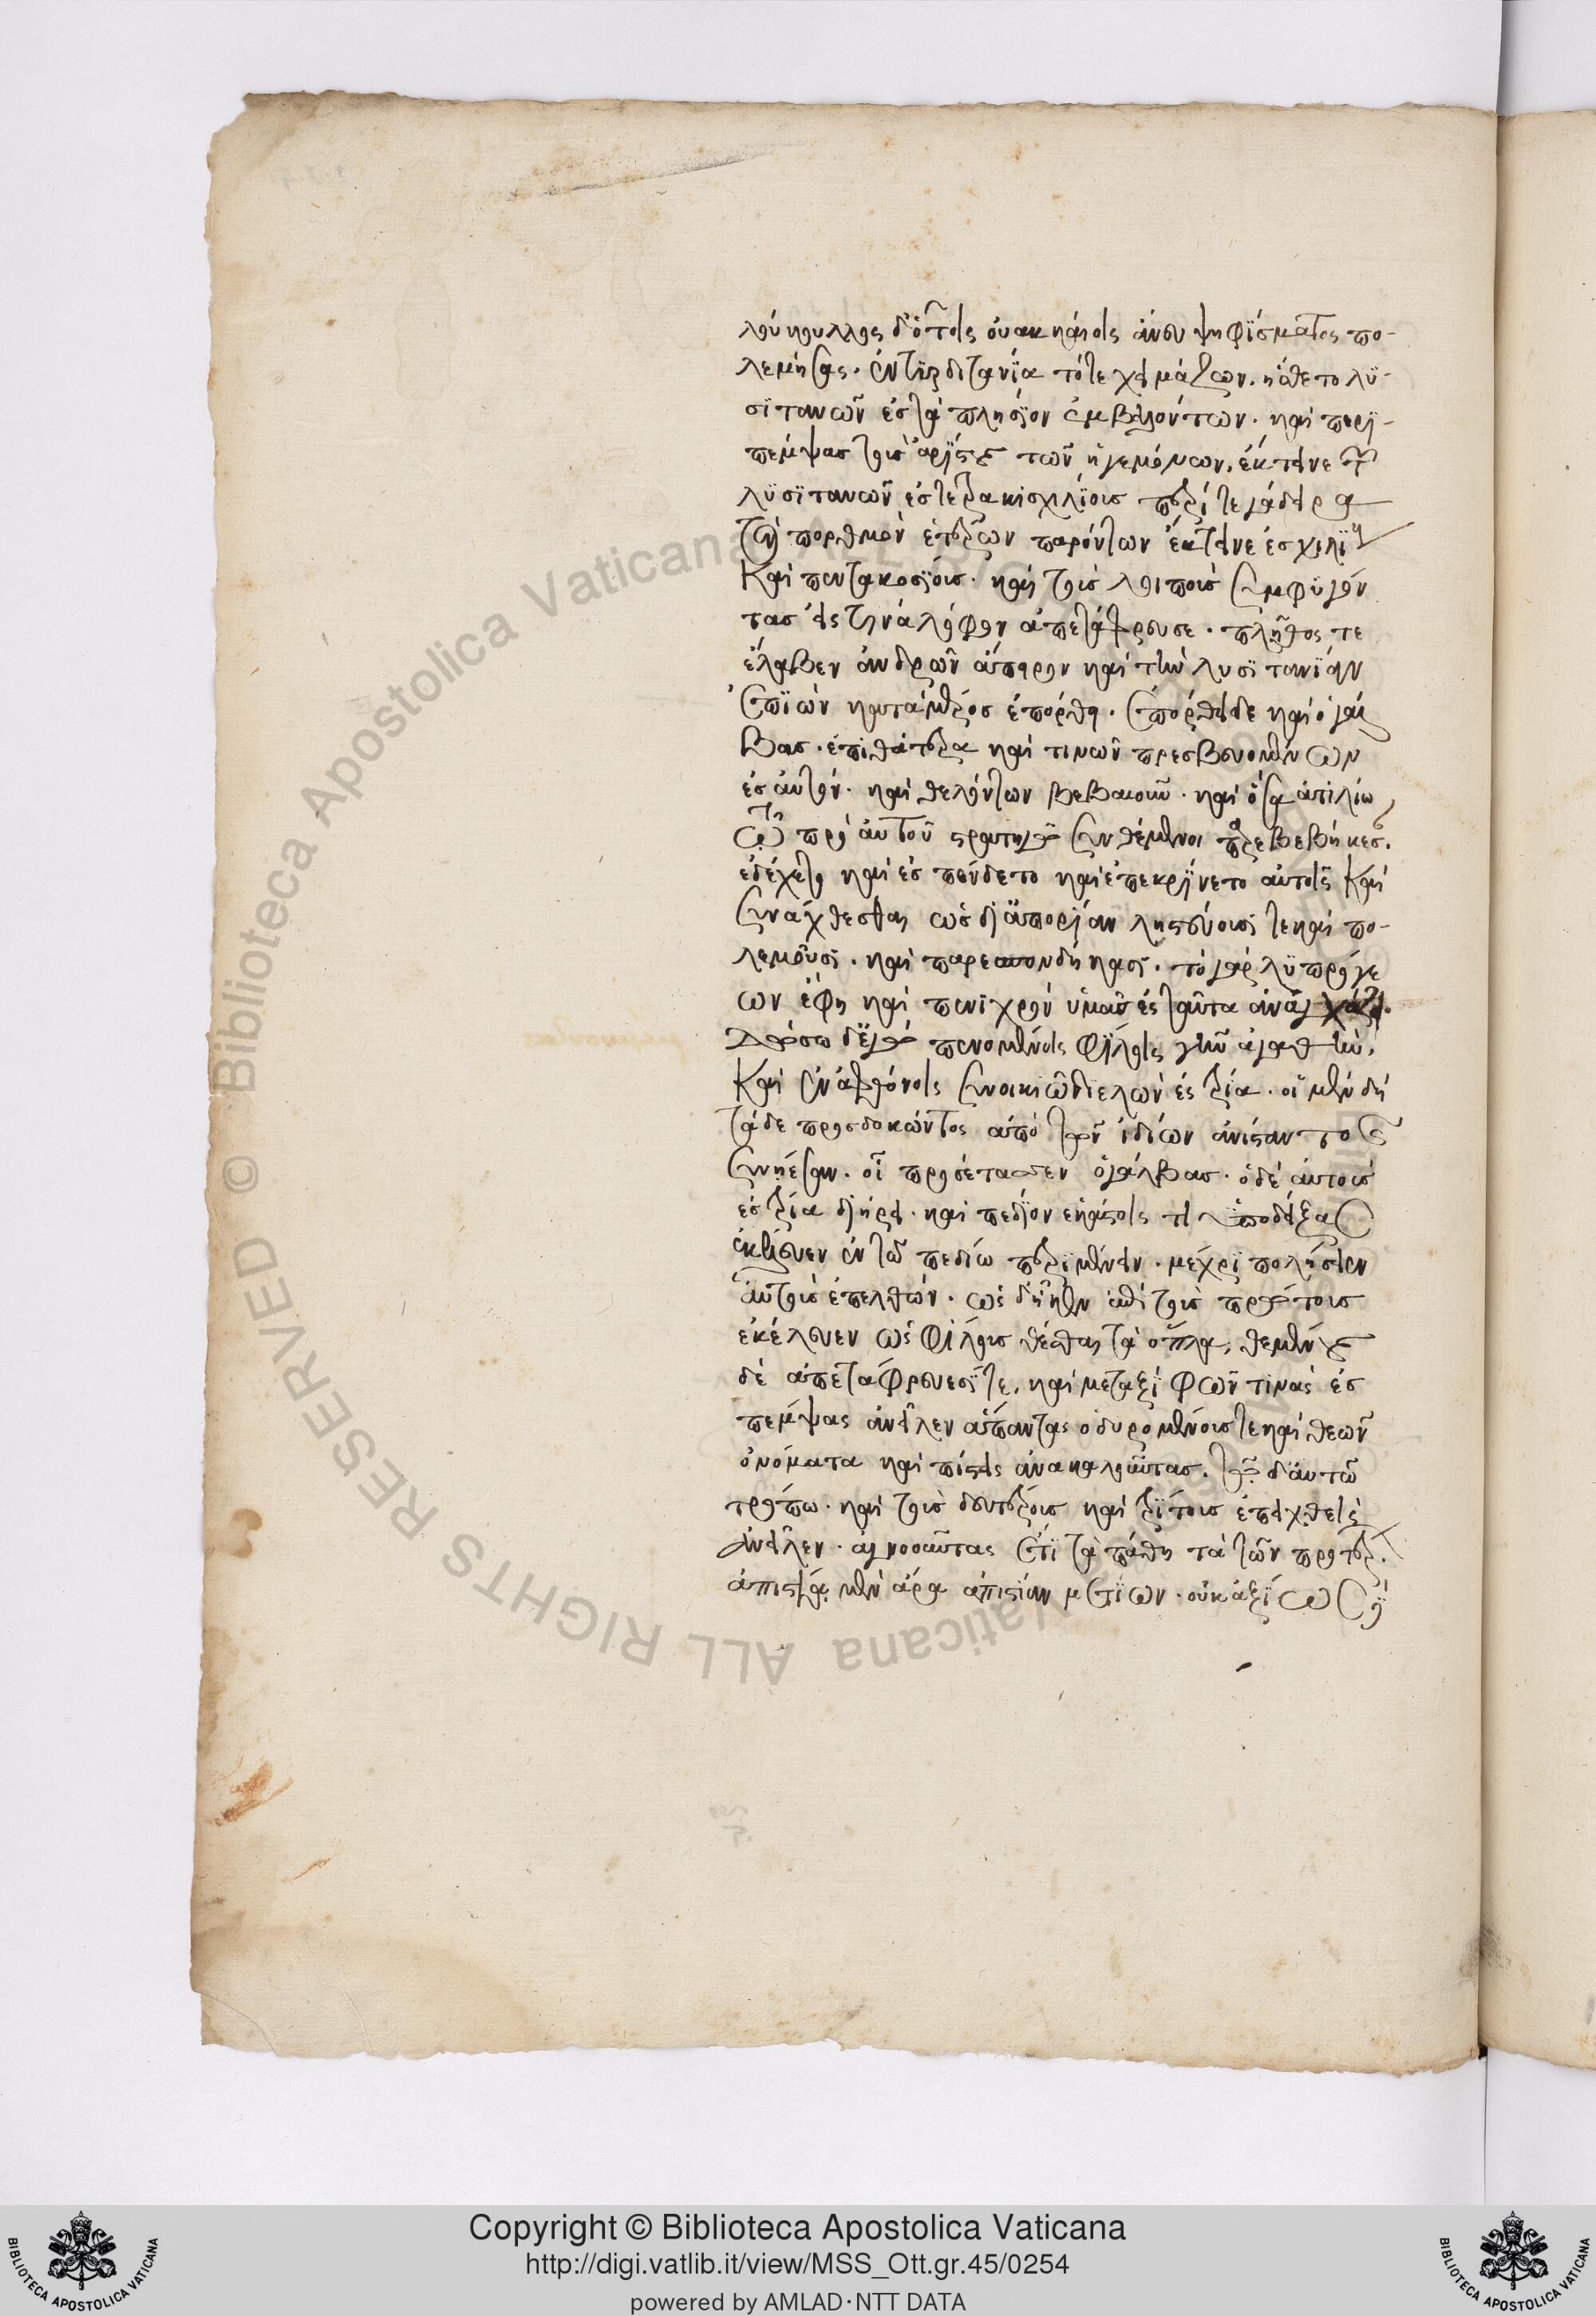 λούκουλλος δ' ὁ τοῖς οὐακκαίοις ἄνευ ψηφίσματος πο-
λεμήσας. ἐν τυρδιτανία τότε χειμάζων. ἤσθετο λυ-
σιτανῶν ἐς τὰ πλησίον ἐμβαλόντων. καὶ περι-
πέμψας τοὺς ἀρίστους τῶν ἡγεμόνων, ἔκτεινε τῶν
λυσιτανῶν ἐς τετρακισχιλίους περί τε γάδειρα
τὸν πορθμὸν ἑτέρων περώντων ἔκτεινε ἐς χιλίους
καὶ πεντακοσίους. καὶ τοὺς λοιποὺς συμφυγόν
τας εἴς τινα λόφον ἀπετάφρευσε. πλῆθός τε
ἔλαβεν ἀνδρῶν ἄπειρον καὶ τὴν λυσιτανίαν
ἐπιὼν κατὰ μέρος ἐπόρθει. ἐπόρθει δὲ καὶ ὁ γάλ
βας. ἐπὶ θάτερα καὶ τινῶν πρεσβευομένων
ἐς αὐτὸν. καὶ θελόντων βεβαιοῦν. καὶ ὅσα ἀτιλίω
τῶ πρὸ αὐτοῦ στρατηγῶ συνθέμενοι παρεβεβήκεσαν.
ἐδέχετο καὶ ἐσπένδετο καὶ ὑπεκρίνετο αὐτοῖς καὶ
συνάχθεσθαι ὡς δι' ἀπορίαν ληστεύουσι τε καὶ πο-
λεμοῦσι. καὶ παρεσπονδηκόσι. τὸ γὰρ λυπρόγε
ων ἔφη καὶ πενιχρὸν ὑμᾶς ἐς ταῦτα ἀναγκάζει.
δώσω δ' ἐγὼ πενομένοις φίλοις γῆν ἀγαθὴν.
καὶ ἐν ἀφθόνοις συνοικιῶ διελὼν ἐς τρία. οἱ μὲν δὴ
τάδε προσδοκῶντες ἀπὸ τῶν ἰδίων ἀνίσταντο καὶ
συνῄεσαν. οἷ προσέτασσεν ὁ γάλβας. ὁ δὲ αὐτοὺς
ἐς τρία διῄρει. καὶ πεδίον ἑκάστοις τι ὑποδείξας
ἐκέλευεν ἐν τῶ πεδίω περιμένειν. μέχρι πολίσειεν
αὐτοὺς ἐπελθών. ὡς δ' ἧκεν ἐπὶ τοὺς πρώτους
ἐκέλευεν ὡς φίλους θέσθαι τὰ ὅπλα, θεμένους
δὲ ἀπετάφρευέ τε, καὶ μετὰ ξιφῶν τινὰς ἐσ
πέμψας ἀνεῖλεν ἅπαντας ὀδυρομένους τε καὶ θεῶν
ὀνόματα καὶ πίστεις ἀνακαλοῦντας. τῶ δ' αὐτῶ
τρόπω. καὶ τοὺς δευτέρους καὶ τρίτους ἐπειχθεὶς
ἀνεῖλεν. ἀγνοοῦντας ἔτι τὰ πάθη τὰ τῶν προτέρων.
ἀπιστία μὲν ἄρα ἀπιστίαν μετιὼν. οὐκ ἀξίως